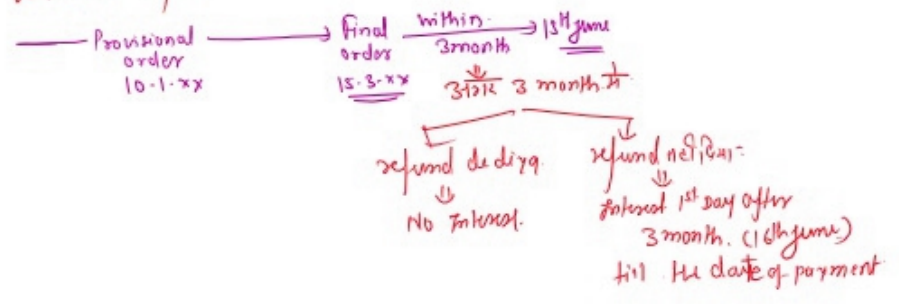 Provisional order 10.1.xx
Final order 15.3.xx
within 3month
15th June
अगर 3 month में
refund de diya
No Interest.
refund नहीं दिया
Interest 1st Day after
3 month. (16th June)
till the date of payment